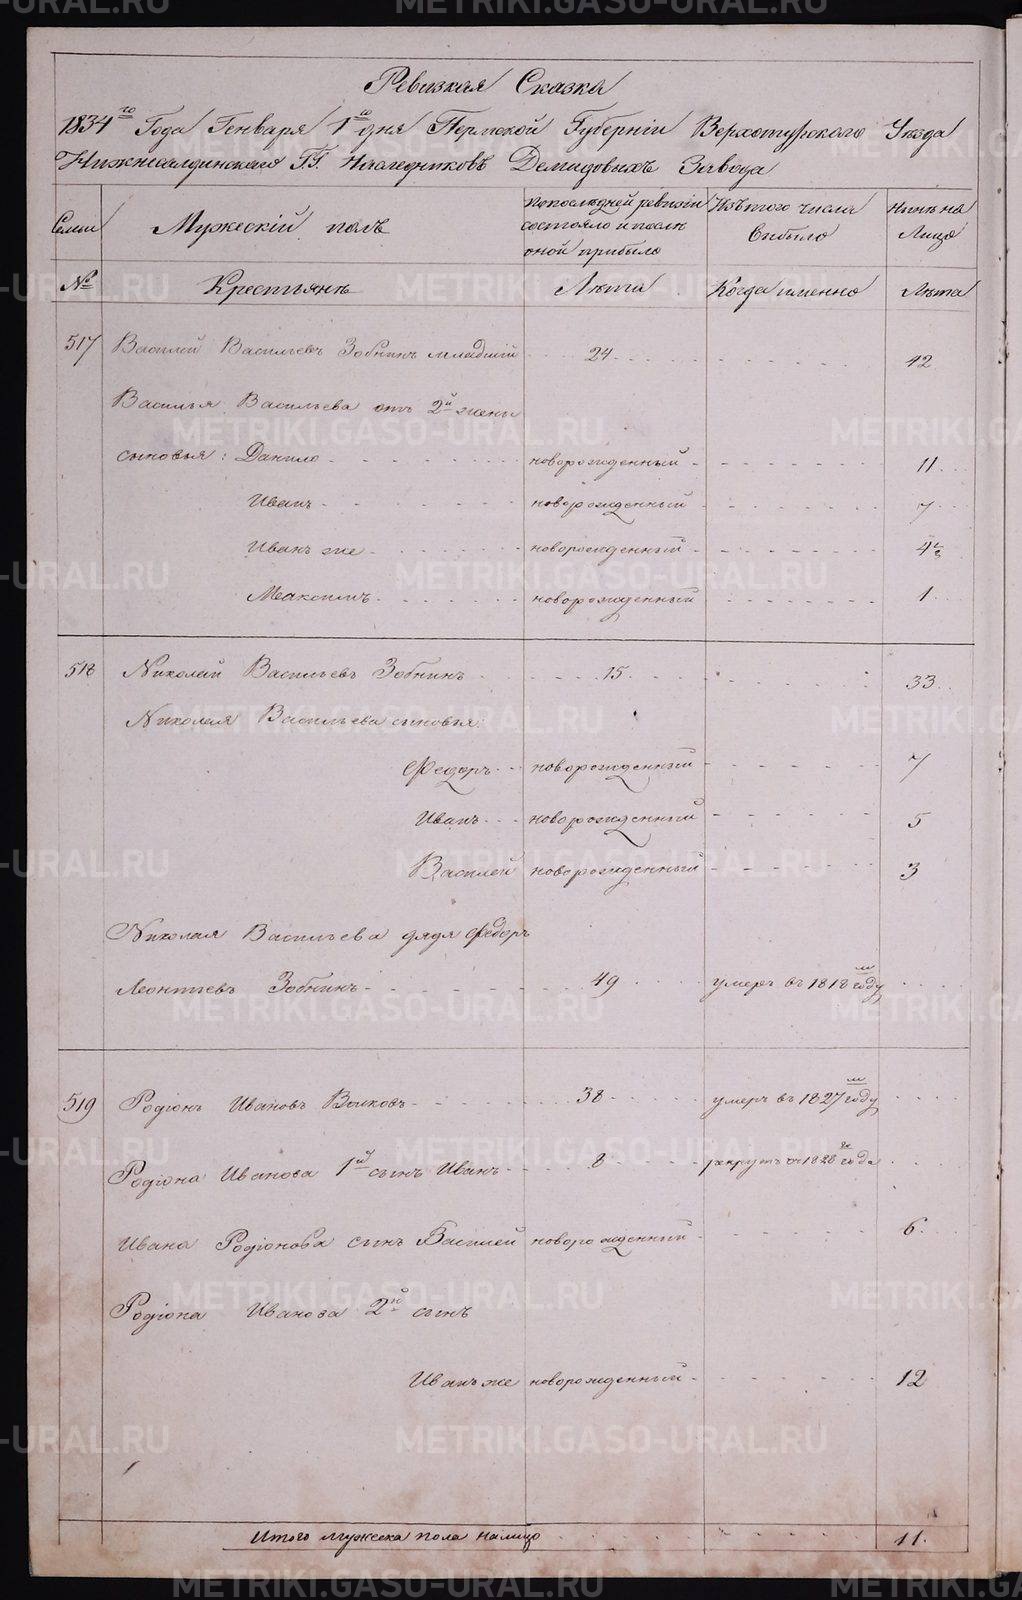 Ревизкая Сказка
1834го Года Генваря 1го дня Пермской Губернiи Верхотурского Уѣзда
Нижнесалдинскаго Г.Г. Наследниковъ Демидовыхъ Завода
Семьи
Мужескiй полъ
По последней ревизiи состояло и после оной прибыло
Изъ того числа выбыло
Ныне на Лицо
№
Крестьяне
Лѣта
Когда именно
Лѣта
517 Василей Васильевъ Зобнинъ младшiй 24 42
Василья Васильева отъ 2й жены
сыновья: Данило новорожденный 11
Иванъ новорожденный 7
Иванъ же новорожденный 4
Максимъ новорожденный 1
518 Николай Васильевъ Зобнинъ 15 33
Николая Васильева сыновья
Федоръ новорожденный 7
Иванъ новорожденный 5
Василей новорожденный 3
Николая Васильева дядя Федоръ
Леонтьевъ Зобнинъ 49 умеръ въ 1818м году
519 Родiонъ Ивановъ Волковъ 38 умеръ въ 1827м году
Родiона Иванова 1й сынъ Иванъ 8 рекрутъ съ 1828го года
Ивана Родiонова сынъ Василей новорожденный 6
Родiона Иванова 2й сынъ
Иванъ же новорожденный 12
Итого мужеска пола налицо 11.
METRIKI.GASO-URAL.RU